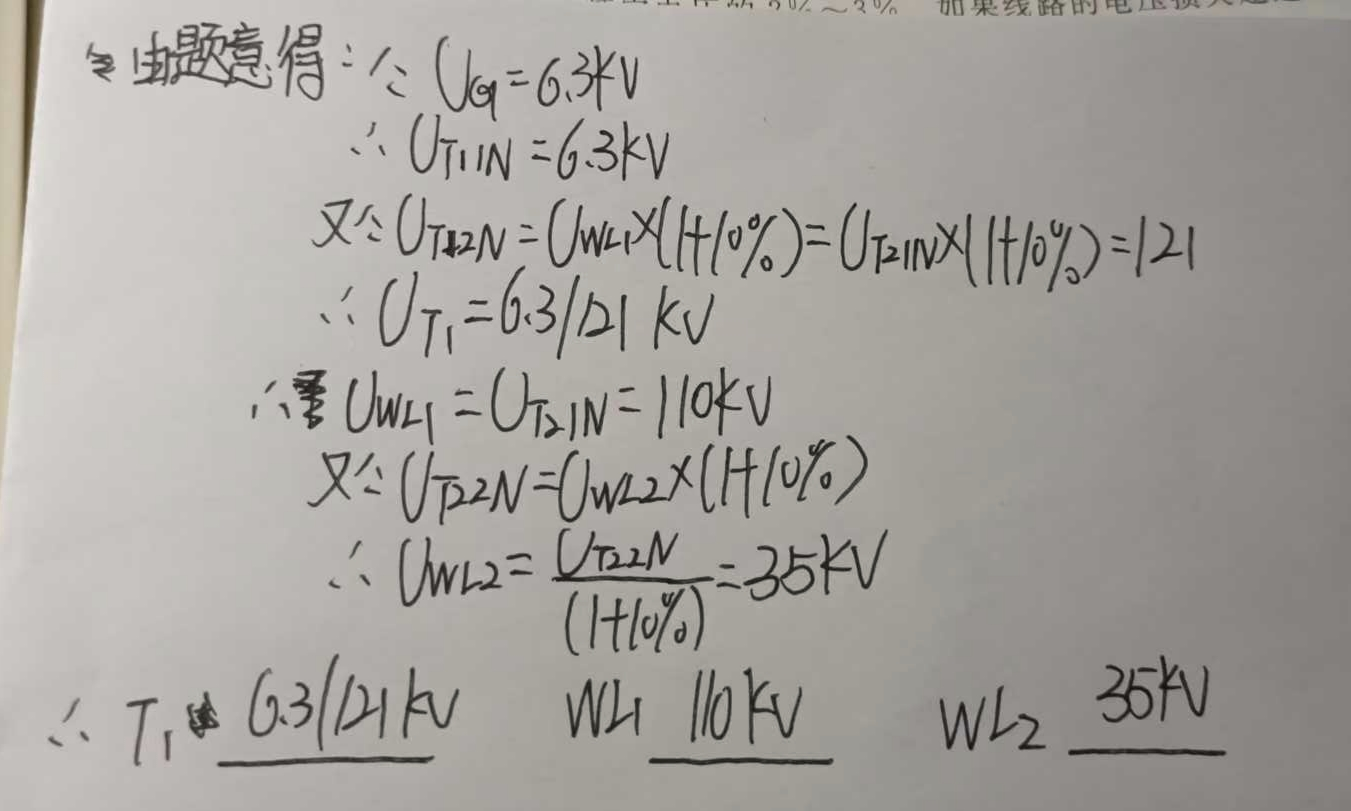 2%～3% 如果线路的电压损
由题意得：∵ UG=6.3kV
∴ UT11N=6.3kV
又∵ UT12N=UWL1×(1+10%)=UT21N×(1+10%)=121
∴ UT1=6.3/121 kV
∴ UWL1=UT21N=110kV
又∵ UT22N=UWL2×(1+10%)
∴ UWL2=UT22N/(1+10%)=35kV
∴ T1 6.3/121kV WL1 110kV WL2 35kV